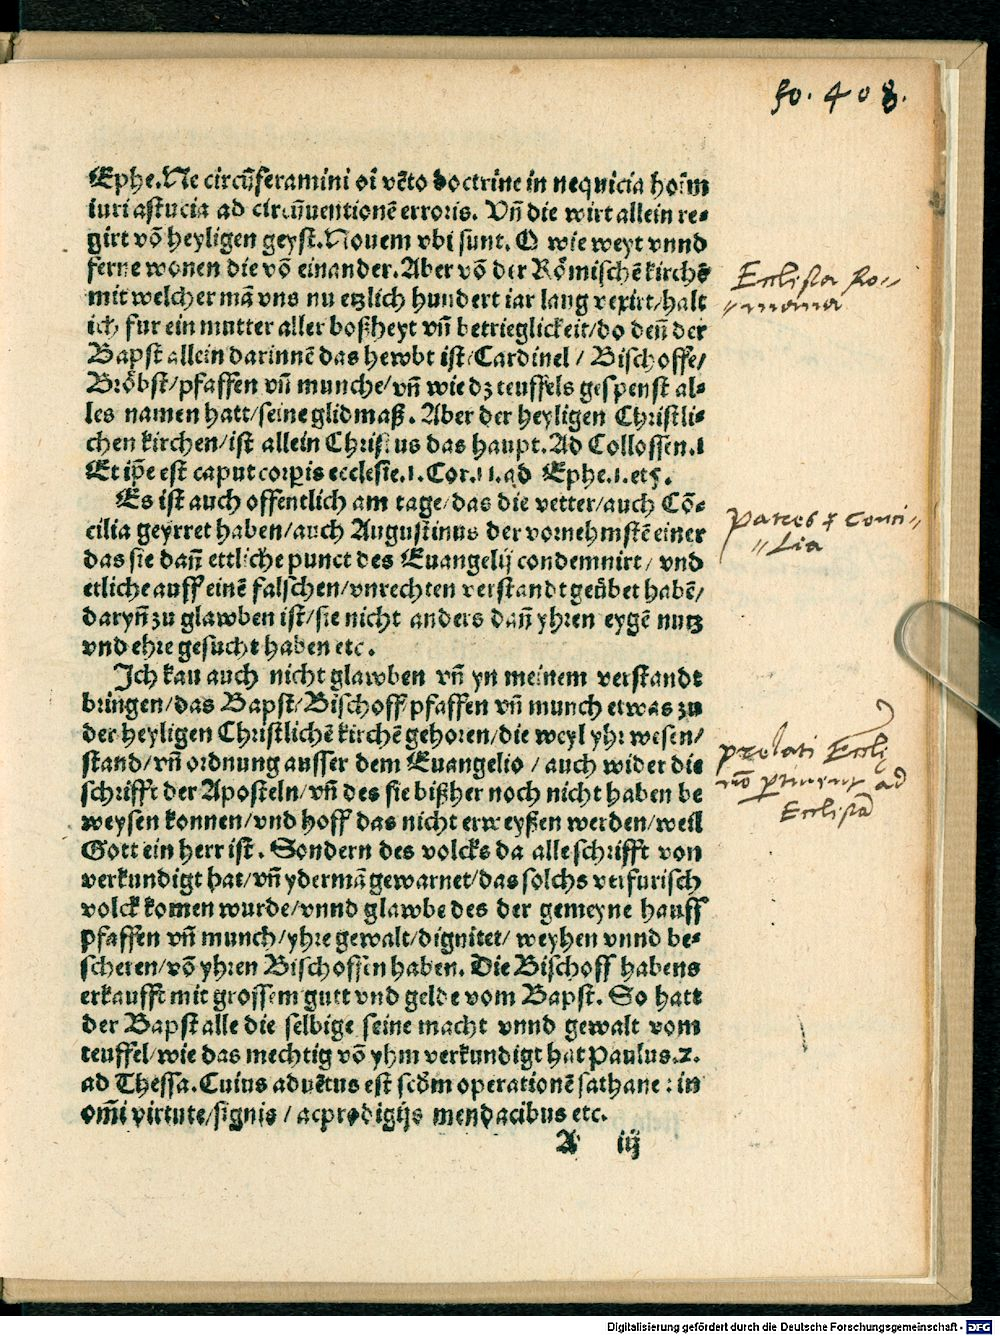 fo. 408.
Ephe. Ne circūferamini oī vēto doctrine in nequicia hoīm
iuri astucia ad circūuentionē erroris. Vn̄ die wirt allein re-
girt vō heyligen geyst. Nouem vbi sunt. O wie weyt vnnd
ferne wonen die vō einander. Aber vō der Römischē kirchē
mit welcher mā vns nu etzlich hundert iar lang vexirt/halt
ich fur ein mutter aller boßheyt vn̄ betrieglickeit/do den̄ der
Bapst allein darinnē das hewbt ist/Cardinel/ Bischoffe/
Bröbst/pfaffen vn̄ munche/vn̄ wie dz teuffels gespenst al-
les namen hatt/seine glidmaß. Aber der heyligen Christli-
chen kirchen/ist allein Christus das haupt. Ad Collossen.1
Et ip̄e est caput corpis ecclesie.1. Cor.11.ad Ephe.1.etꝫ.
Es ist auch offentlich am tage/das die vetter/auch Cō-
cilia geyrret haben/auch Augustinus der vornehmstē einer
das sie dan̄ ettliche punct des Euangelij condemnirt/ vnd
etliche auff einē falschen/vnrechten verstandt geübet habē/
daryn̄ zu glawben ist/sie nicht anders dan̄ yhren eygē nutz
vnd ehre gesucht haben etc.
Ich kau auch nicht glawben vn̄ yn meinem verstandt
bringen/das Bapst/Bischoff pfaffen vn̄ munch etwas zu
der heyligen Christlichē kirchē gehoren/die weyl yhr wesen/
stand/vn̄ ordnung ausser dem Euangelio / auch wider die
schrifft der Aposteln/vn̄ des sie bißher noch nicht haben be
weysen konnen/vnd hoff das nicht erweyßen werden/weil
Gott ein herr ist. Sondern des volcks da alle schrifft von
verkundigt hat/vn̄ ydermā gewarnet/das solchs verfurisch
volck komen wurde/vnnd glawbe des der gemeyne hauff
pfaffen vn̄ munch/yhre gewalt/dignitet/ weyhen vnnd be-
scheren/vō yhren Bischoffen haben. Die Bischoff habens
erkaufft mit grossem gutt vnd gelde vom Bapst. So hatt
der Bapst alle die selbige seine macht vnnd gewalt vom
teuffel/wie das mechtig vō yhm verkundigt hat Paulus.2.
ad Thessa. Cuius aduētus est scd̄m operationē sathane: in
om̄i virtute/signis / ac prodigijs mendacibus etc.
A iij
Ecclesia Ro-
mana
Patres & Conci-
lia
prelati Eccle
nō pertinent ad
Ecclesiā
Digitalisierung gefördert durch die Deutsche Forschungsgemeinschaft - DFG